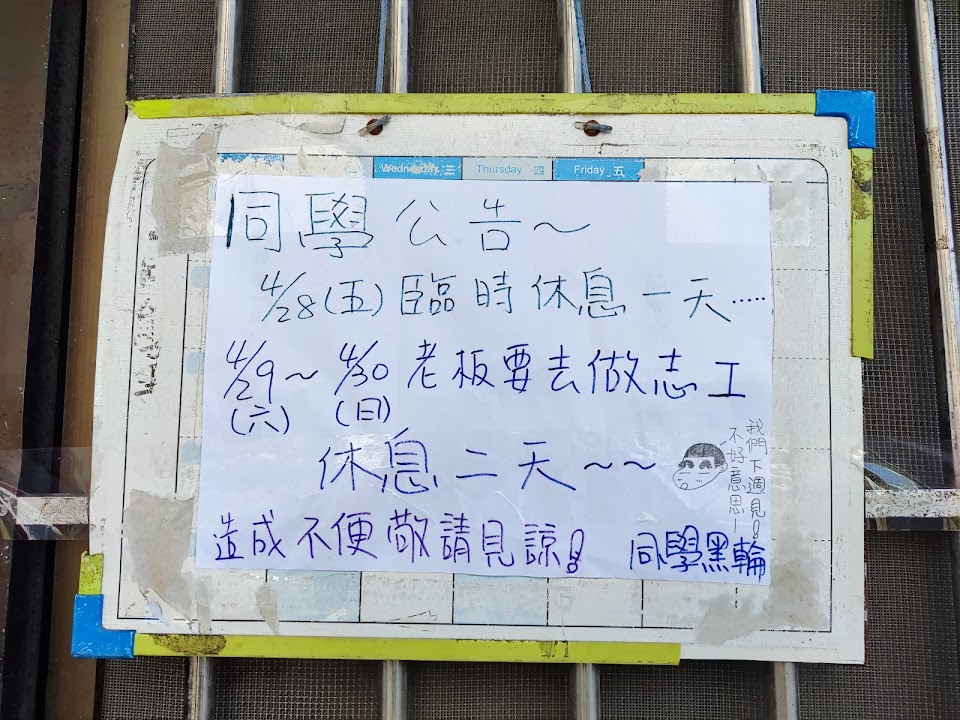 Wednesday 三 Thursday 四 Friday 五
同學公告～
4/28(五)臨時休息一天.....
4/29～4/30老板要去做志工
(六) (日)
休息二天～～
我們下週見!
不好意思~
造成不便敬請見諒!
同學黑輪